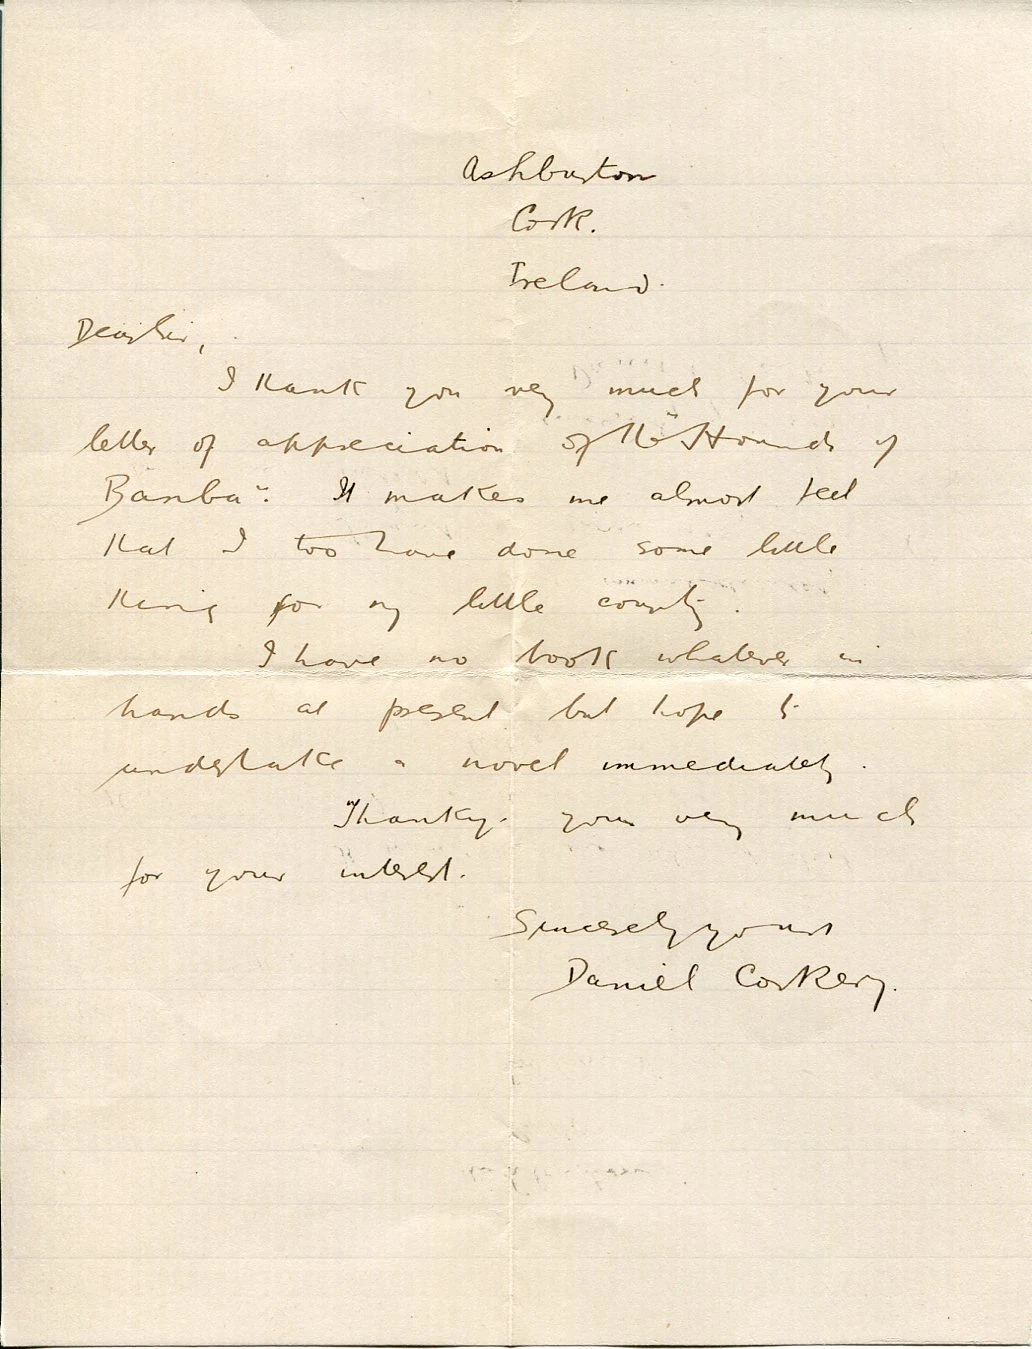 Ashburton
Cork.
Ireland.
Dear Sir,
I thank you very much for your
letter of appreciation of the "Hounds of
Banba". It makes me almost feel
that I too have done some little
thing for my little country.
I have no book whatever in
hands at present but hope to
undertake a novel immediately.
Thanking you very much
for your interest.
Sincerely yours
Daniel Corkery.